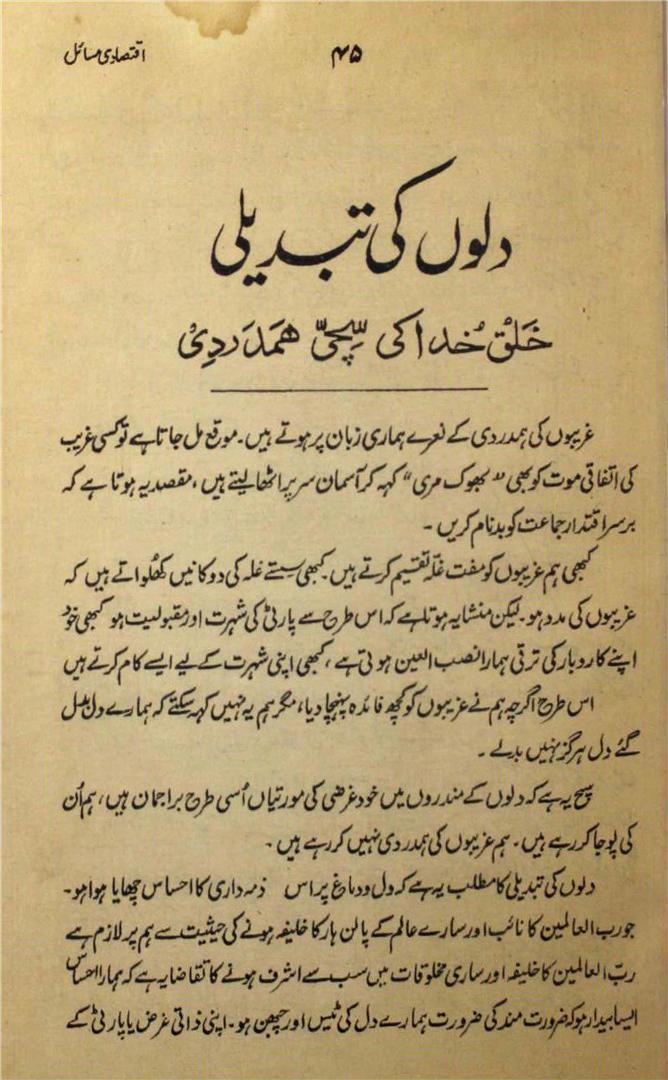 اقتصادی مسائل
۴۵
دلوں کی تبدیلی
خَلقِ خُدا کی سِچّی ھمدَردِیْ
غریبوں کی ہمدردی کے نعرے ہماری زبان پر ہوتے ہیں۔ موقع مل جاتا ہے تو کسی غریب
کی اتفاقی موت کو بھی "بھوک مری" کہہ کر آسمان سر پر اٹھا لیتے ہیں، مقصد یہ ہوتا ہے کہ
برسر اقتدار جماعت کو بدنام کریں۔
کبھی ہم غریبوں کو مفت غلّہ تقسیم کرتے ہیں۔ کبھی سستے غلہ کی دوکانیں کھُلواتے ہیں کہ
غریبوں کی مدد ہو۔ لیکن منشا یہ ہوتا ہے کہ اس طرح سے پارٹی کی شہرت اور مقبولیت ہو کبھی خود
اپنے کاروبار کی ترقی ہمارا نصب العین ہوتی ہے، کبھی اپنی شہرت کے لیے ایسے کام کرتے ہیں
اس طرح اگرچہ ہم نے غریبوں کو کچھ فائدہ پہنچا دیا، مگر ہم یہ نہیں کہہ سکتے کہ ہمارے دل بدل
گئے دل ہرگز نہیں بدلے۔
سچ یہ ہے کہ دلوں کے مندروں میں خود غرضی کی مورتیاں اُسی طرح براجمان ہیں، ہم اُن
کی پوجا کر رہے ہیں۔ ہم غریبوں کی ہمدردی نہیں کر رہے ہیں۔
دلوں کی تبدیلی کا مطلب یہ ہے کہ دل و دماغ پر اس ذمہ داری کا احساس چھایا ہوا ہو۔
جو رب العالمین کا نائب اور سارے عالم کے پالن ہار کا خلیفہ ہونے کی حیثیت سے ہم پر لازم ہے
ربّ العالمین کا خلیفہ اور ساری مخلوقات میں سب سے اشرف ہونے کا تقاضا یہ ہے کہ ہمارا احساس
ایسا بیدار ہو کہ ضرورت مند کی ضرورت ہمارے دل کی ٹیس اور چبھن ہو۔ اپنی ذاتی غرض یا پارٹی کے